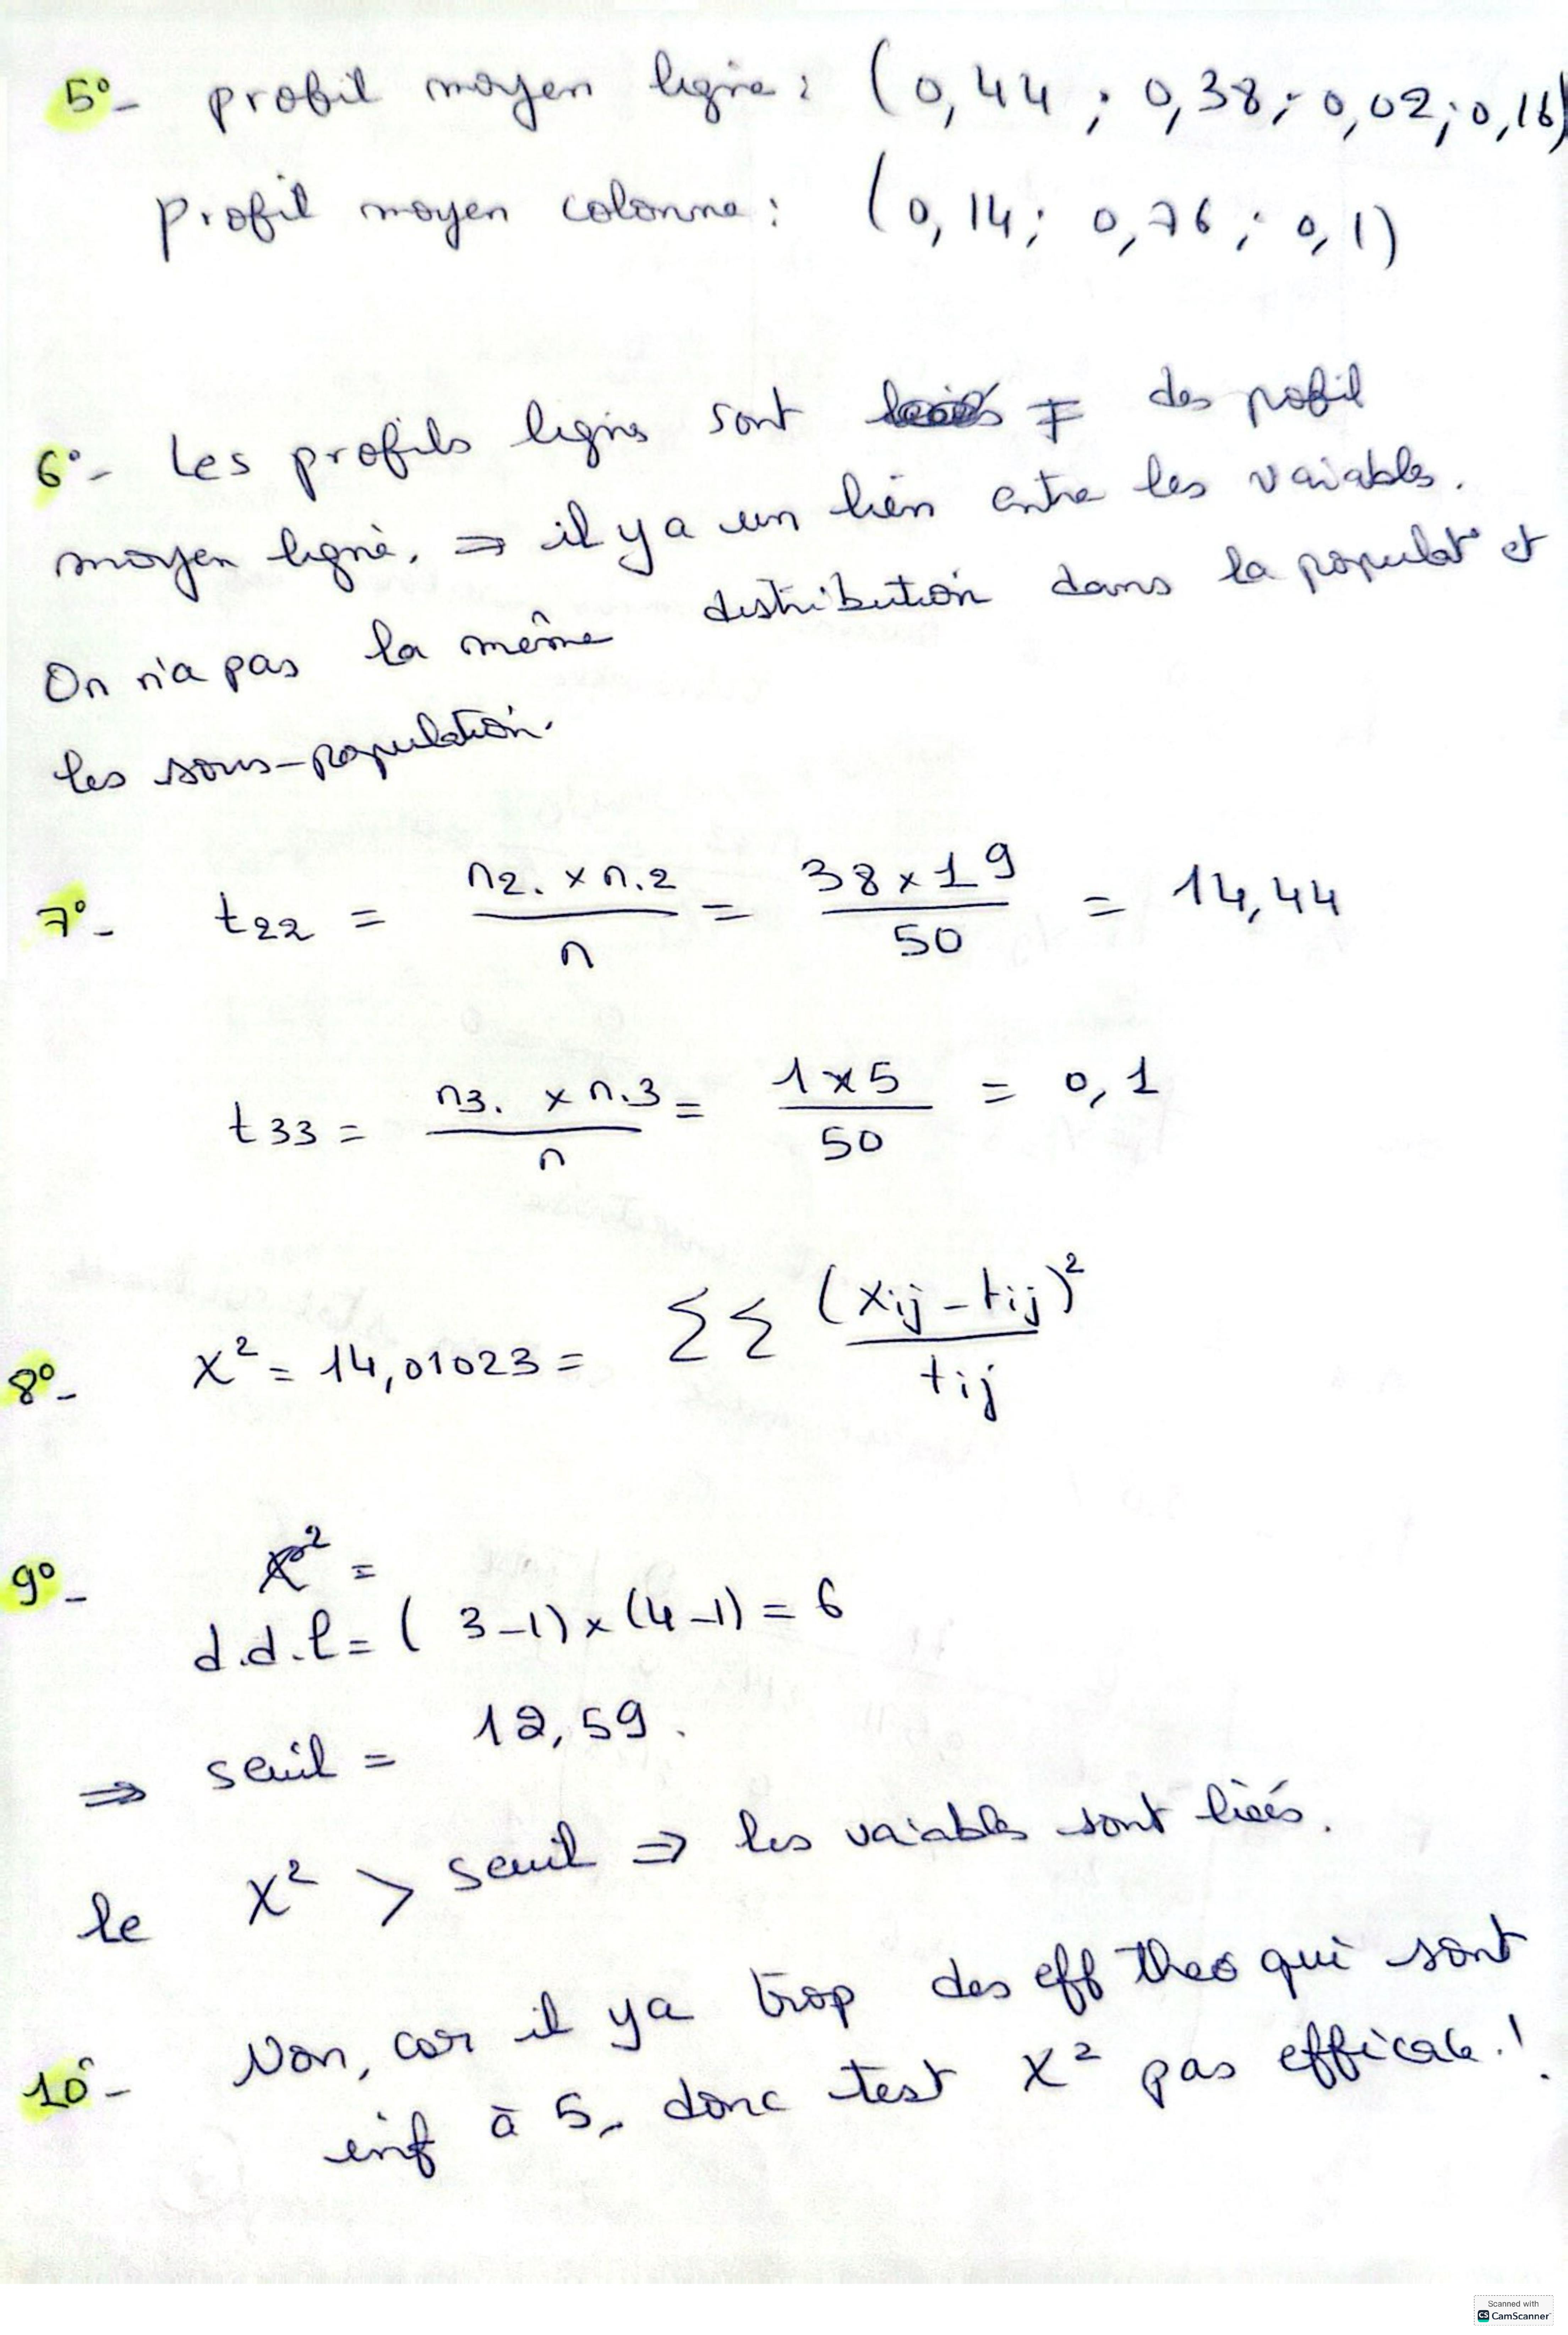 5°- profil moyen ligne : (0,44 ; 0,38 ; 0,02 ; 0,16)
profil moyen colonne : (0,14 ; 0,76 ; 0,1)
6°- Les profils ligne sont ≠ des profil
moyen ligne. ⇒ il y a un lien entre les variables.
On n'a pas la même distribution dans la populat° et
les sous-population.
7°- t22 = n2. × n.2 / n = 38 × 19 / 50 = 14,44
t33 = n3. × n.3 / n = 1 × 5 / 50 = 0,1
8°- X² = 14,01023 = Σ Σ (xij - tij)² / tij
9°- X² =
d.d.l = (3-1) × (4-1) = 6
⇒ seuil = 12,59.
le X² > seuil ⇒ les variables sont liées.
10°- Non, car il ya trop des eff theo qui sont
inf à 5, donc test X² pas efficace.!
Scanned with
CS CamScanner